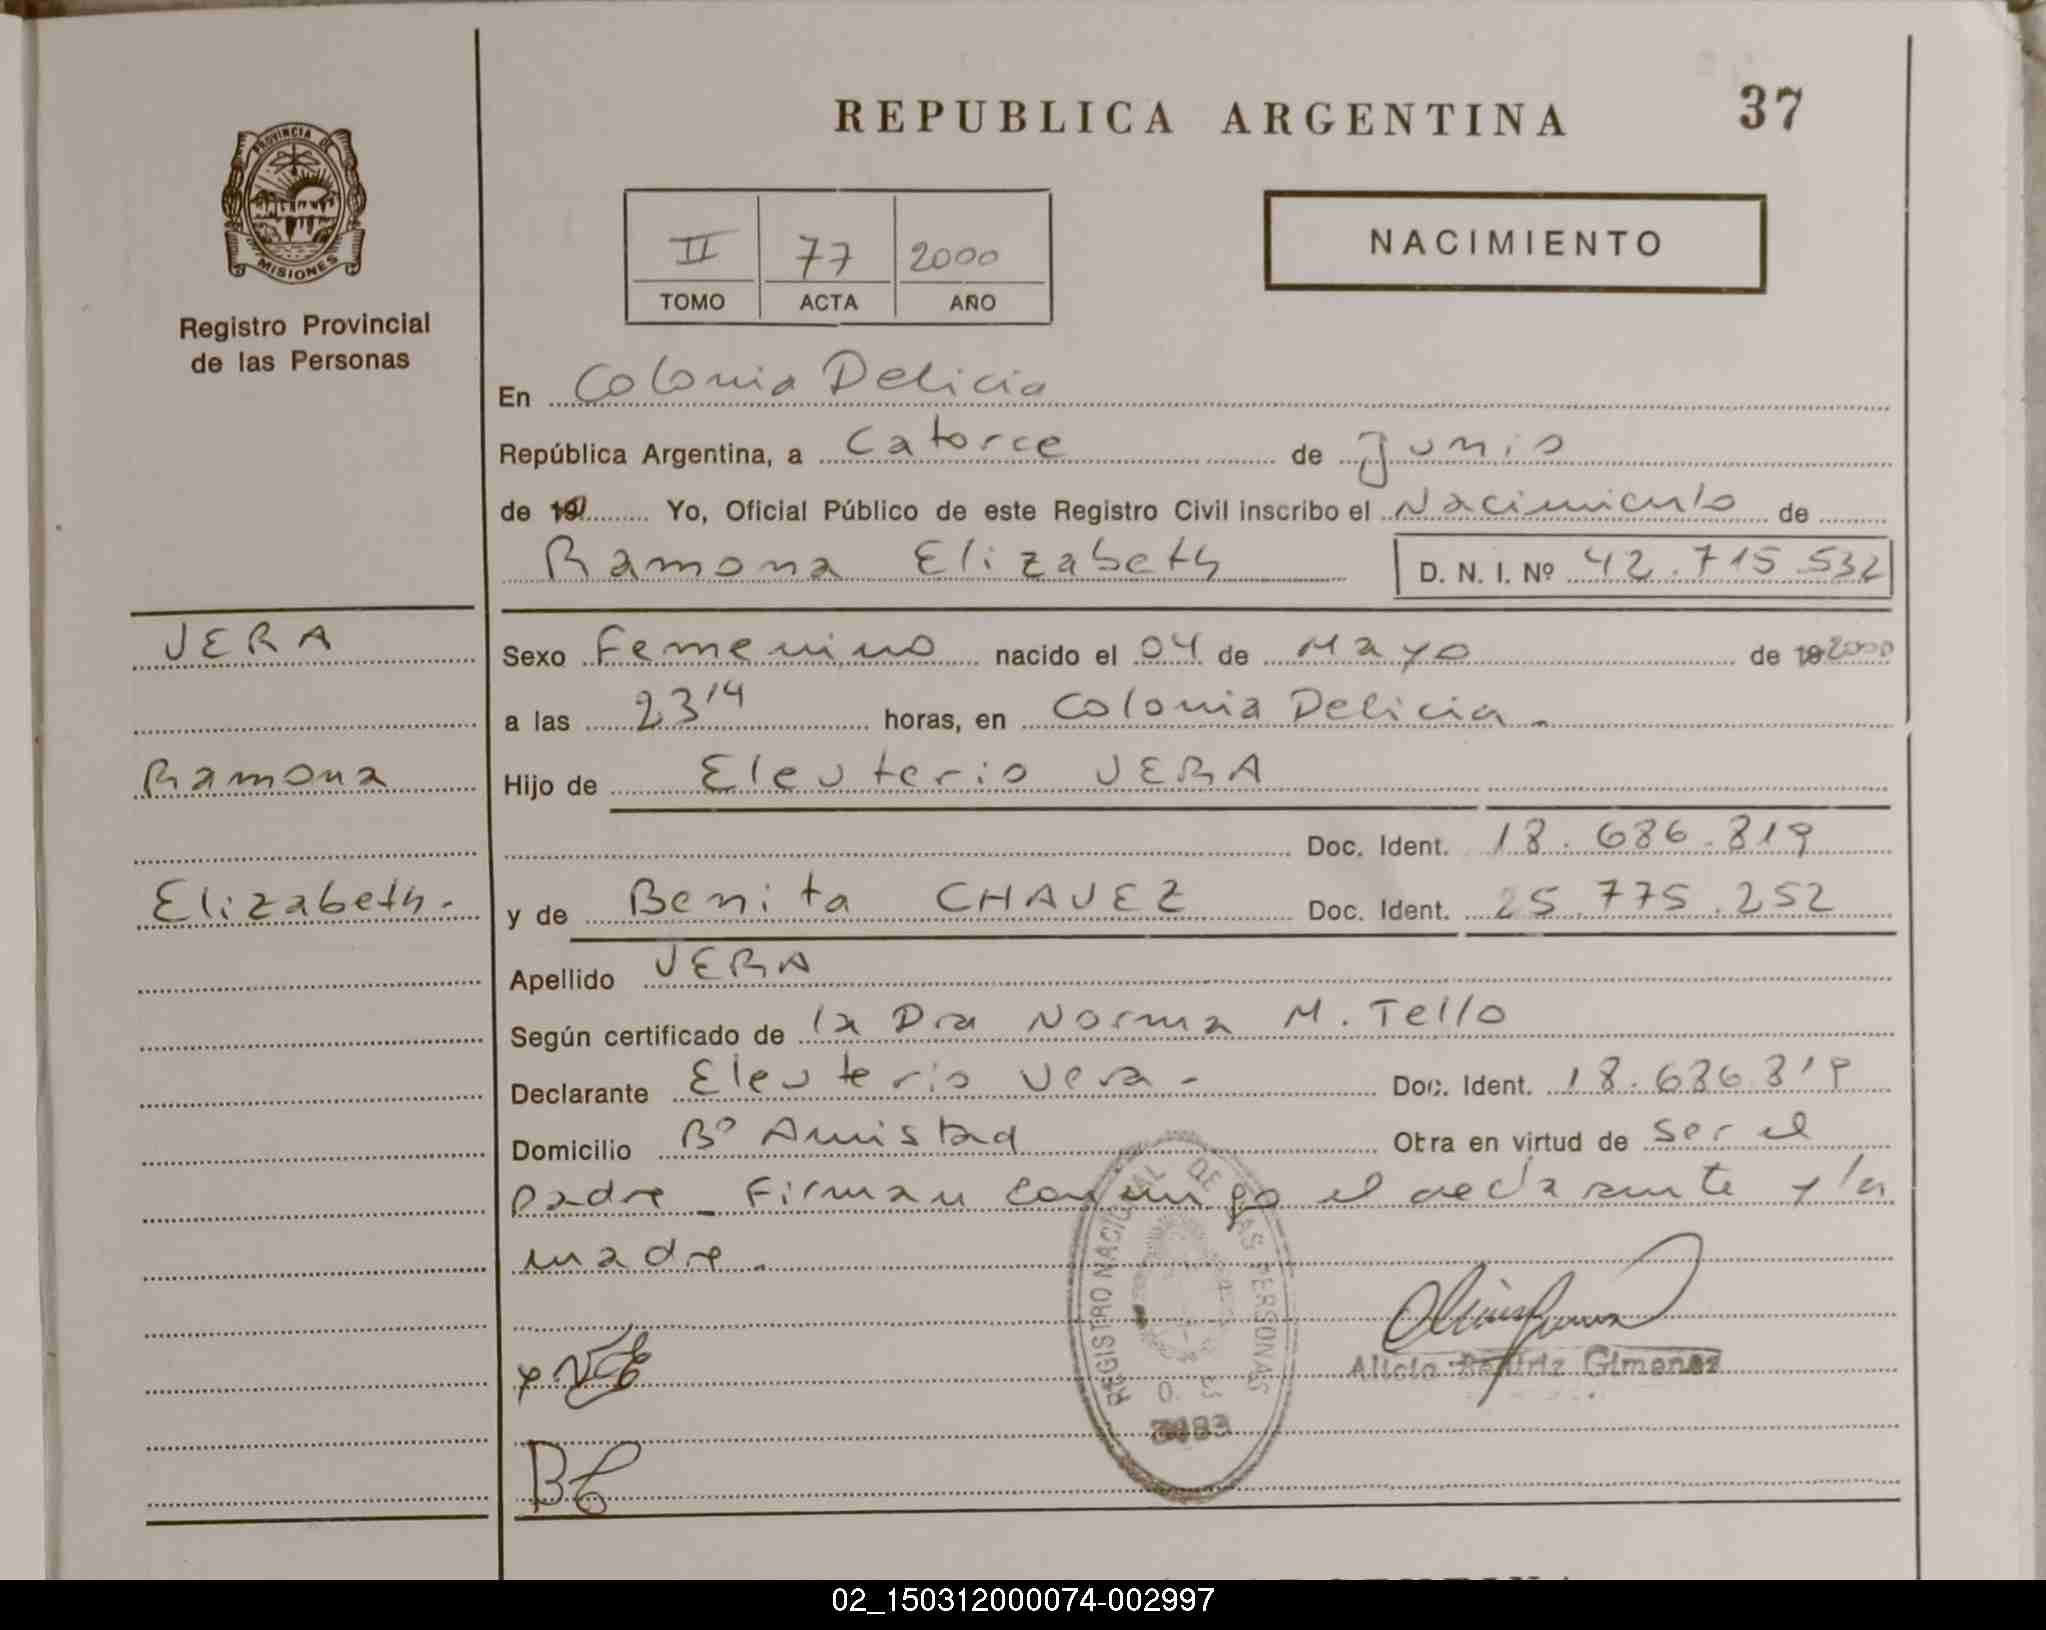 REPUBLICA ARGENTINA
37
PROVINCIA DE
MISIONES
Registro Provincial
de las Personas
II 77 2000
TOMO ACTA AÑO
NACIMIENTO
En Colonia Delicia
República Argentina, a Catorce de Junio
de 19 Yo, Oficial Público de este Registro Civil inscribo el Nacimiento de
Ramona Elizabeth D. N. I. Nº 42.715.532
VERA
Sexo Femenino nacido el 04 de Mayo de 19 2000
a las 23'14 horas, en Colonia Delicia.
Ramona
Hijo de Eleuterio VERA
Doc. Ident. 18.686.819
Elizabeth.
y de Benita CHAVEZ Doc. Ident. 25.775.252
Apellido VERA
Según certificado de la Dra Norma M. Tello
Declarante Eleuterio Vera - Doc. Ident. 18.686.819
Domicilio Bº Amistad Otra en virtud de ser el
padre _ Firman conmigo el declarante y la
madre.
REGISTRO NACIONAL DE LAS PERSONAS
Alicia Beatriz Gimenez
02_150312000074-002997